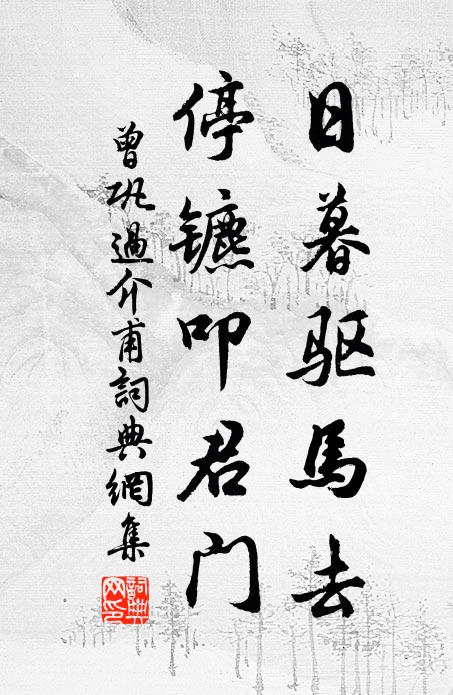 日暮驱馬去
停镳叩君门
曾巩過介甫詞典網集